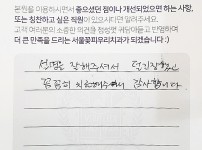 본원을 이용하시면서 좋으셨던 점이나 개선되었으면 하는 사항,
또는 칭찬하고 싶은 직원이 있으시다면 알려주세요.
고객 여러분의 소중한 의견을 정성껏 귀담아듣고 반영하여
더 큰 만족을 드리는 서울꽃피우리치과가 되겠습니다 :)
설명을 잘해주셔서
꼼꼼히 치료해주셔서 감사합니다.